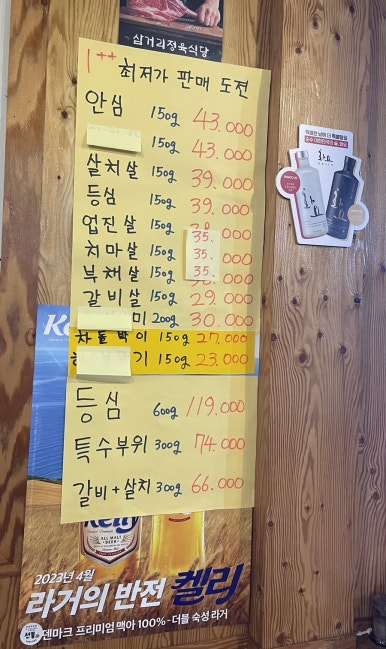 삼거리정육식당
1++ 최저가 판매 도전
안심 150g 43.000
150g 43.000
살치살 150g 39.000
등심 150g 39.000
업진살 150g 35.
치마살 150g 35. 000
부채살 150g 35.
갈비살 150g 29.000
미 200g 30.000
차돌박이 150g 27.000
기 150g 23.000
등심 600g 119.000
특수부위 300g 74.000
갈비+살치 300g 66.000
Kelly
ALL MALT
BEER
2023년 4월
라거의 반전 켈리
덴마크 프리미엄 맥아 100% - 더블 숙성 라거
화요